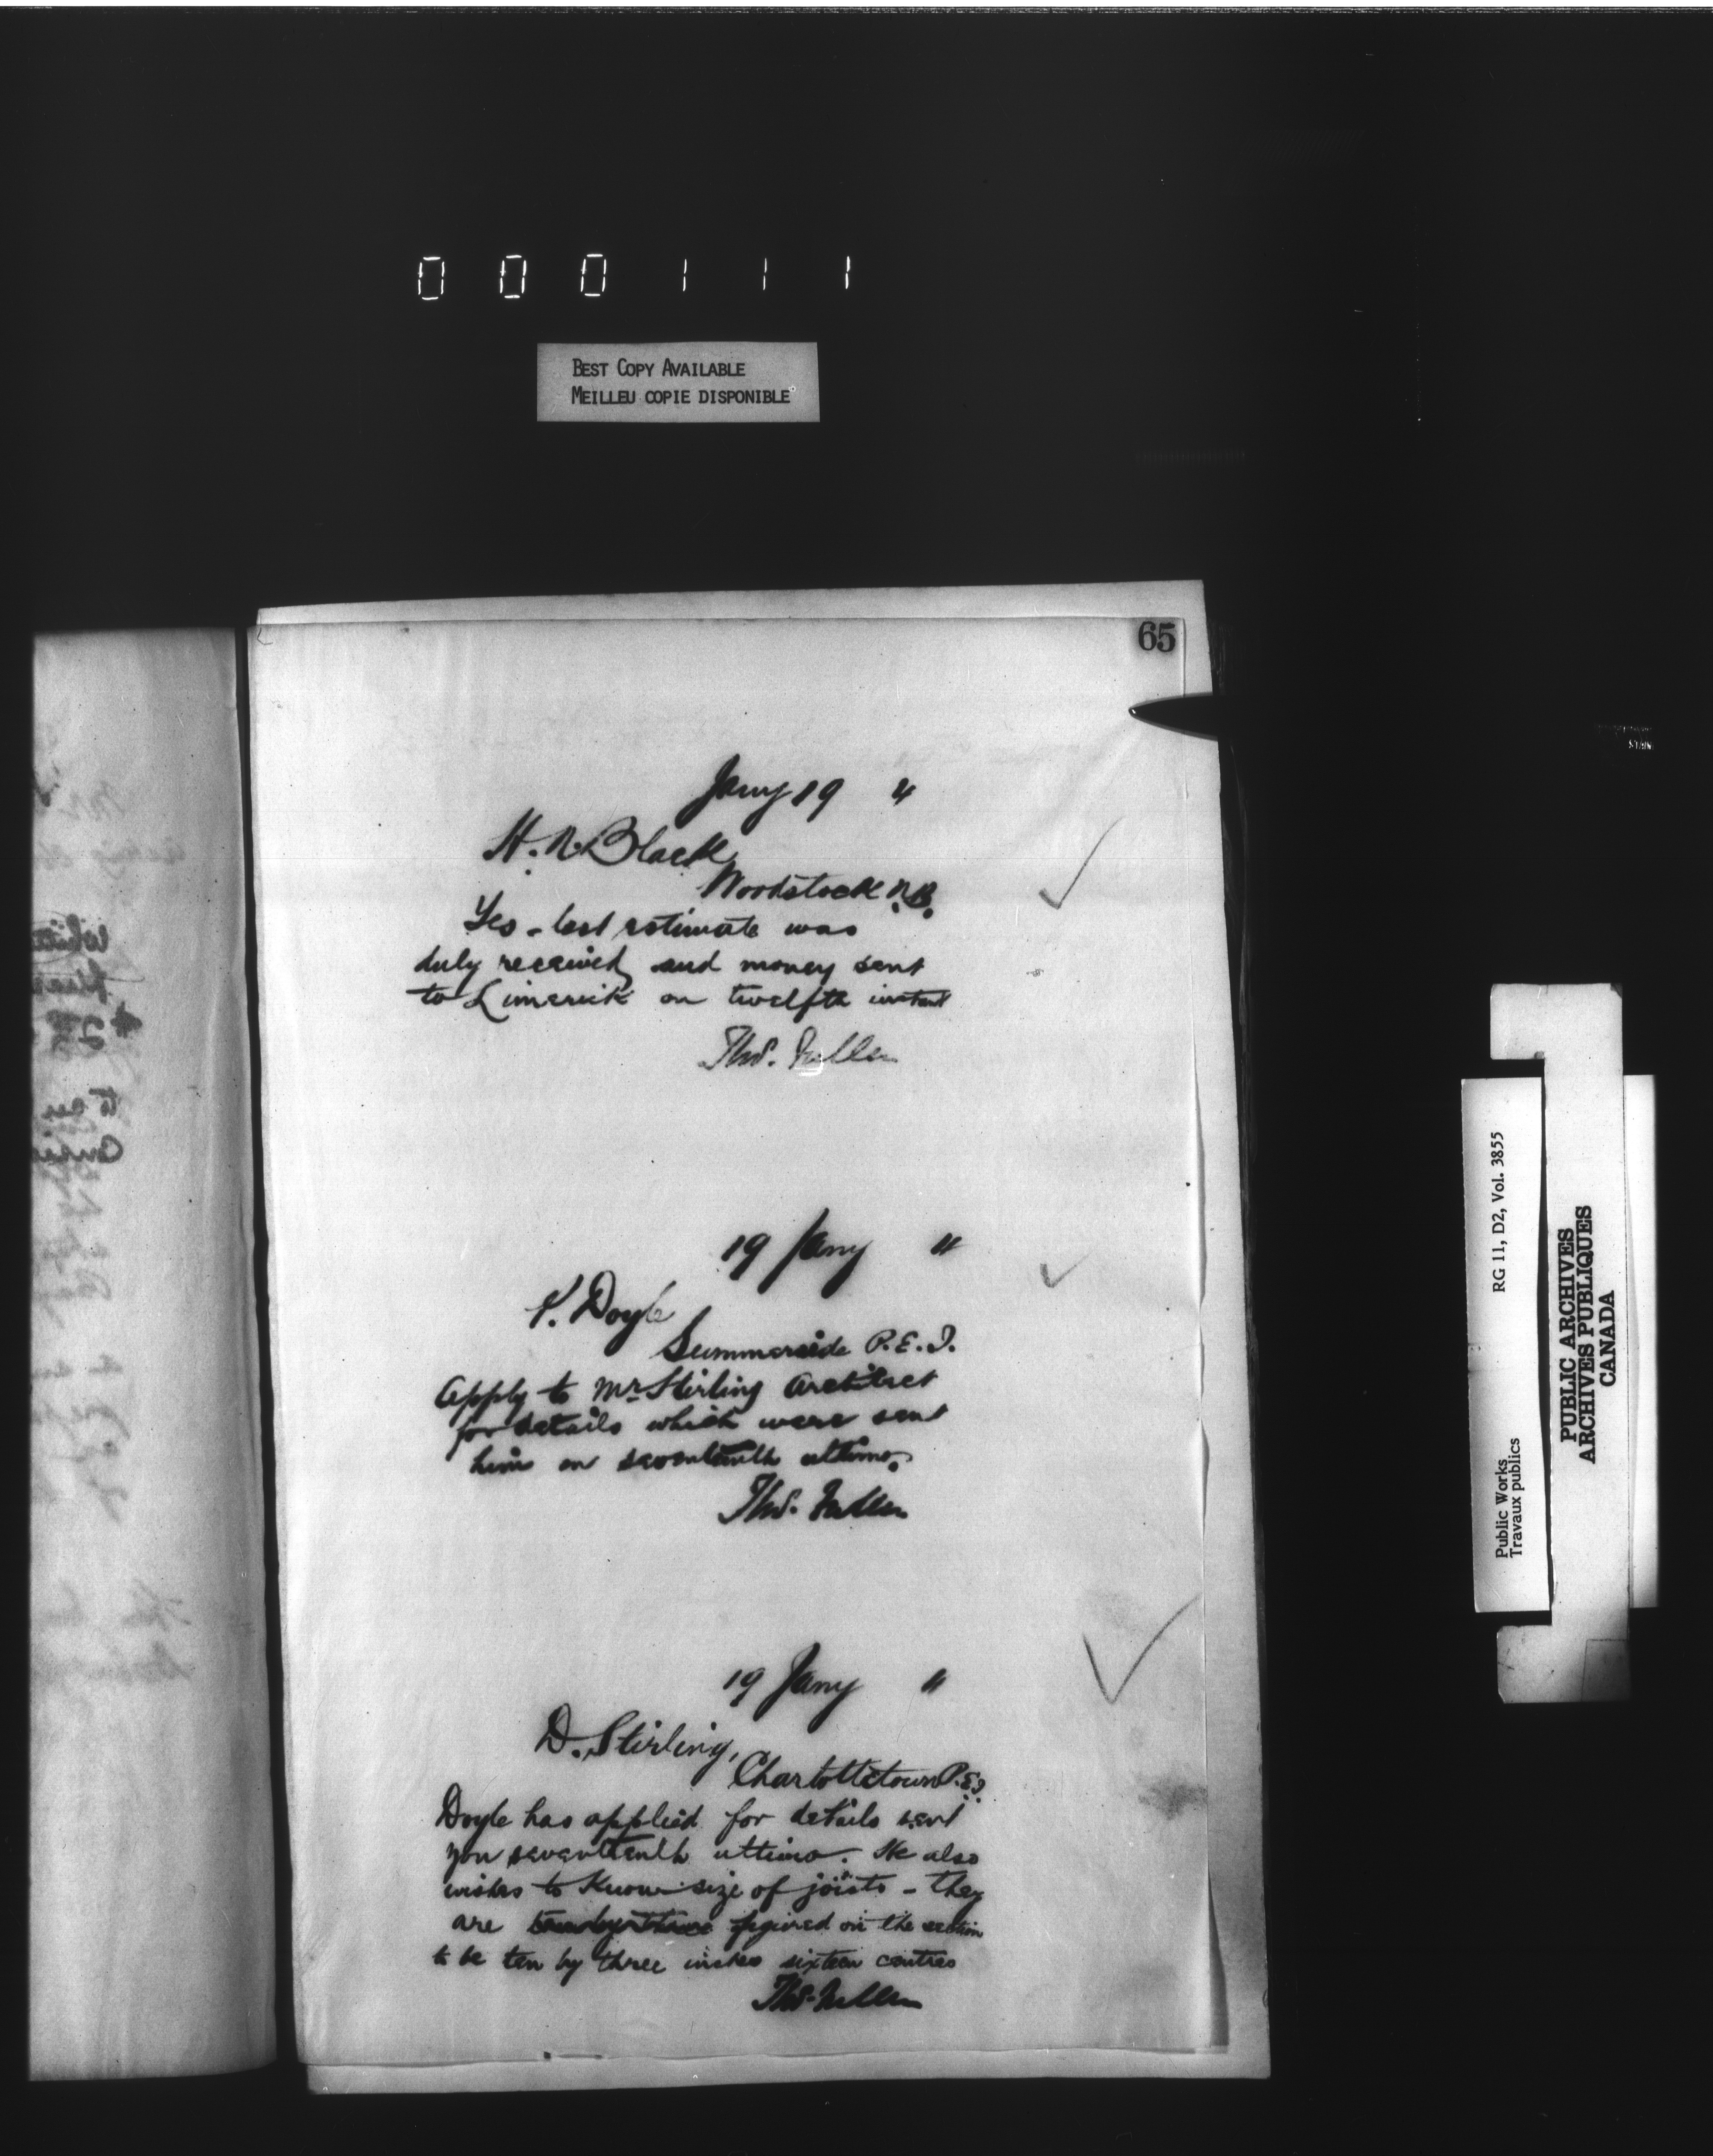 000111
BEST COPY AVAILABLE
MEILLEU COPIE DISPONIBLE
65
Jany 19 4
H. N. Black
Woodstock N.B.
Yes - last estimate was
duly received, and money sent
to Limerick on twelfth instant
Thos. Fuller
19 Jany "
P. Doyle
Summerside P.E.I.
Apply to Mr Stirling Architect
for details which were sent
him on seventeenth ultimo.
Thos. Fuller
19 Jany "
D. Stirling,
Charlottetown P.E.I.
Doyle has applied for details sent
you seventeenth ultimo. He also
wishes to know size of joists - they
are figured on the section
to be ten by three inches sixteen centres
Thos. Fuller
RG 11, D2, Vol. 3855
Public Works
Travaux publics
PUBLIC ARCHIVES
ARCHIVES PUBLIQUES
CANADA